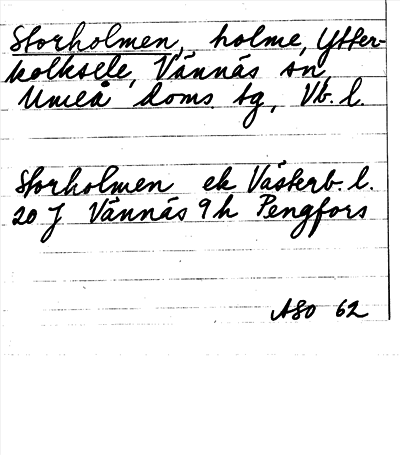 Storholmen, holme, Ytter-
kolksele, Vännäs sn,
Umeå doms. tg, Vb. l.
Storholmen ek Västerb. l.
20 J Vännäs 9 h Pengfors
ASO 62